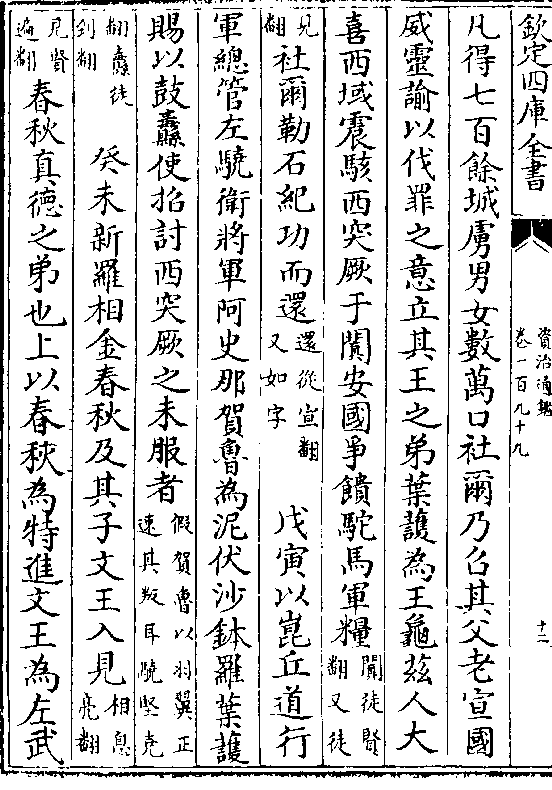 欽定四庫全書
資治通鑑
卷一百九十九
十二
凡得七百餘城虜男女數萬口社爾乃召其父老宣國
威靈諭以伐罪之意立其王之弟葉護為王龜兹人大
喜西域震駭西突厥于闐安國爭饋駝馬軍糧闐徒賢翻又徒
見翻社爾勒石紀功而還還從宣翻又如字 戊寅以崑丘道行
軍總管左驍衛將軍阿史那賀魯為泥伏沙鉢羅葉護
賜以鼓纛使招討西突厥之未服者假賀魯以羽翼正速其叛耳驍堅堯
翻纛徒到翻 癸未新羅相金春秋及其子文王入見相息亮翻
見賢遍翻春秋真德之弟也上以春秋為特進文王為左武